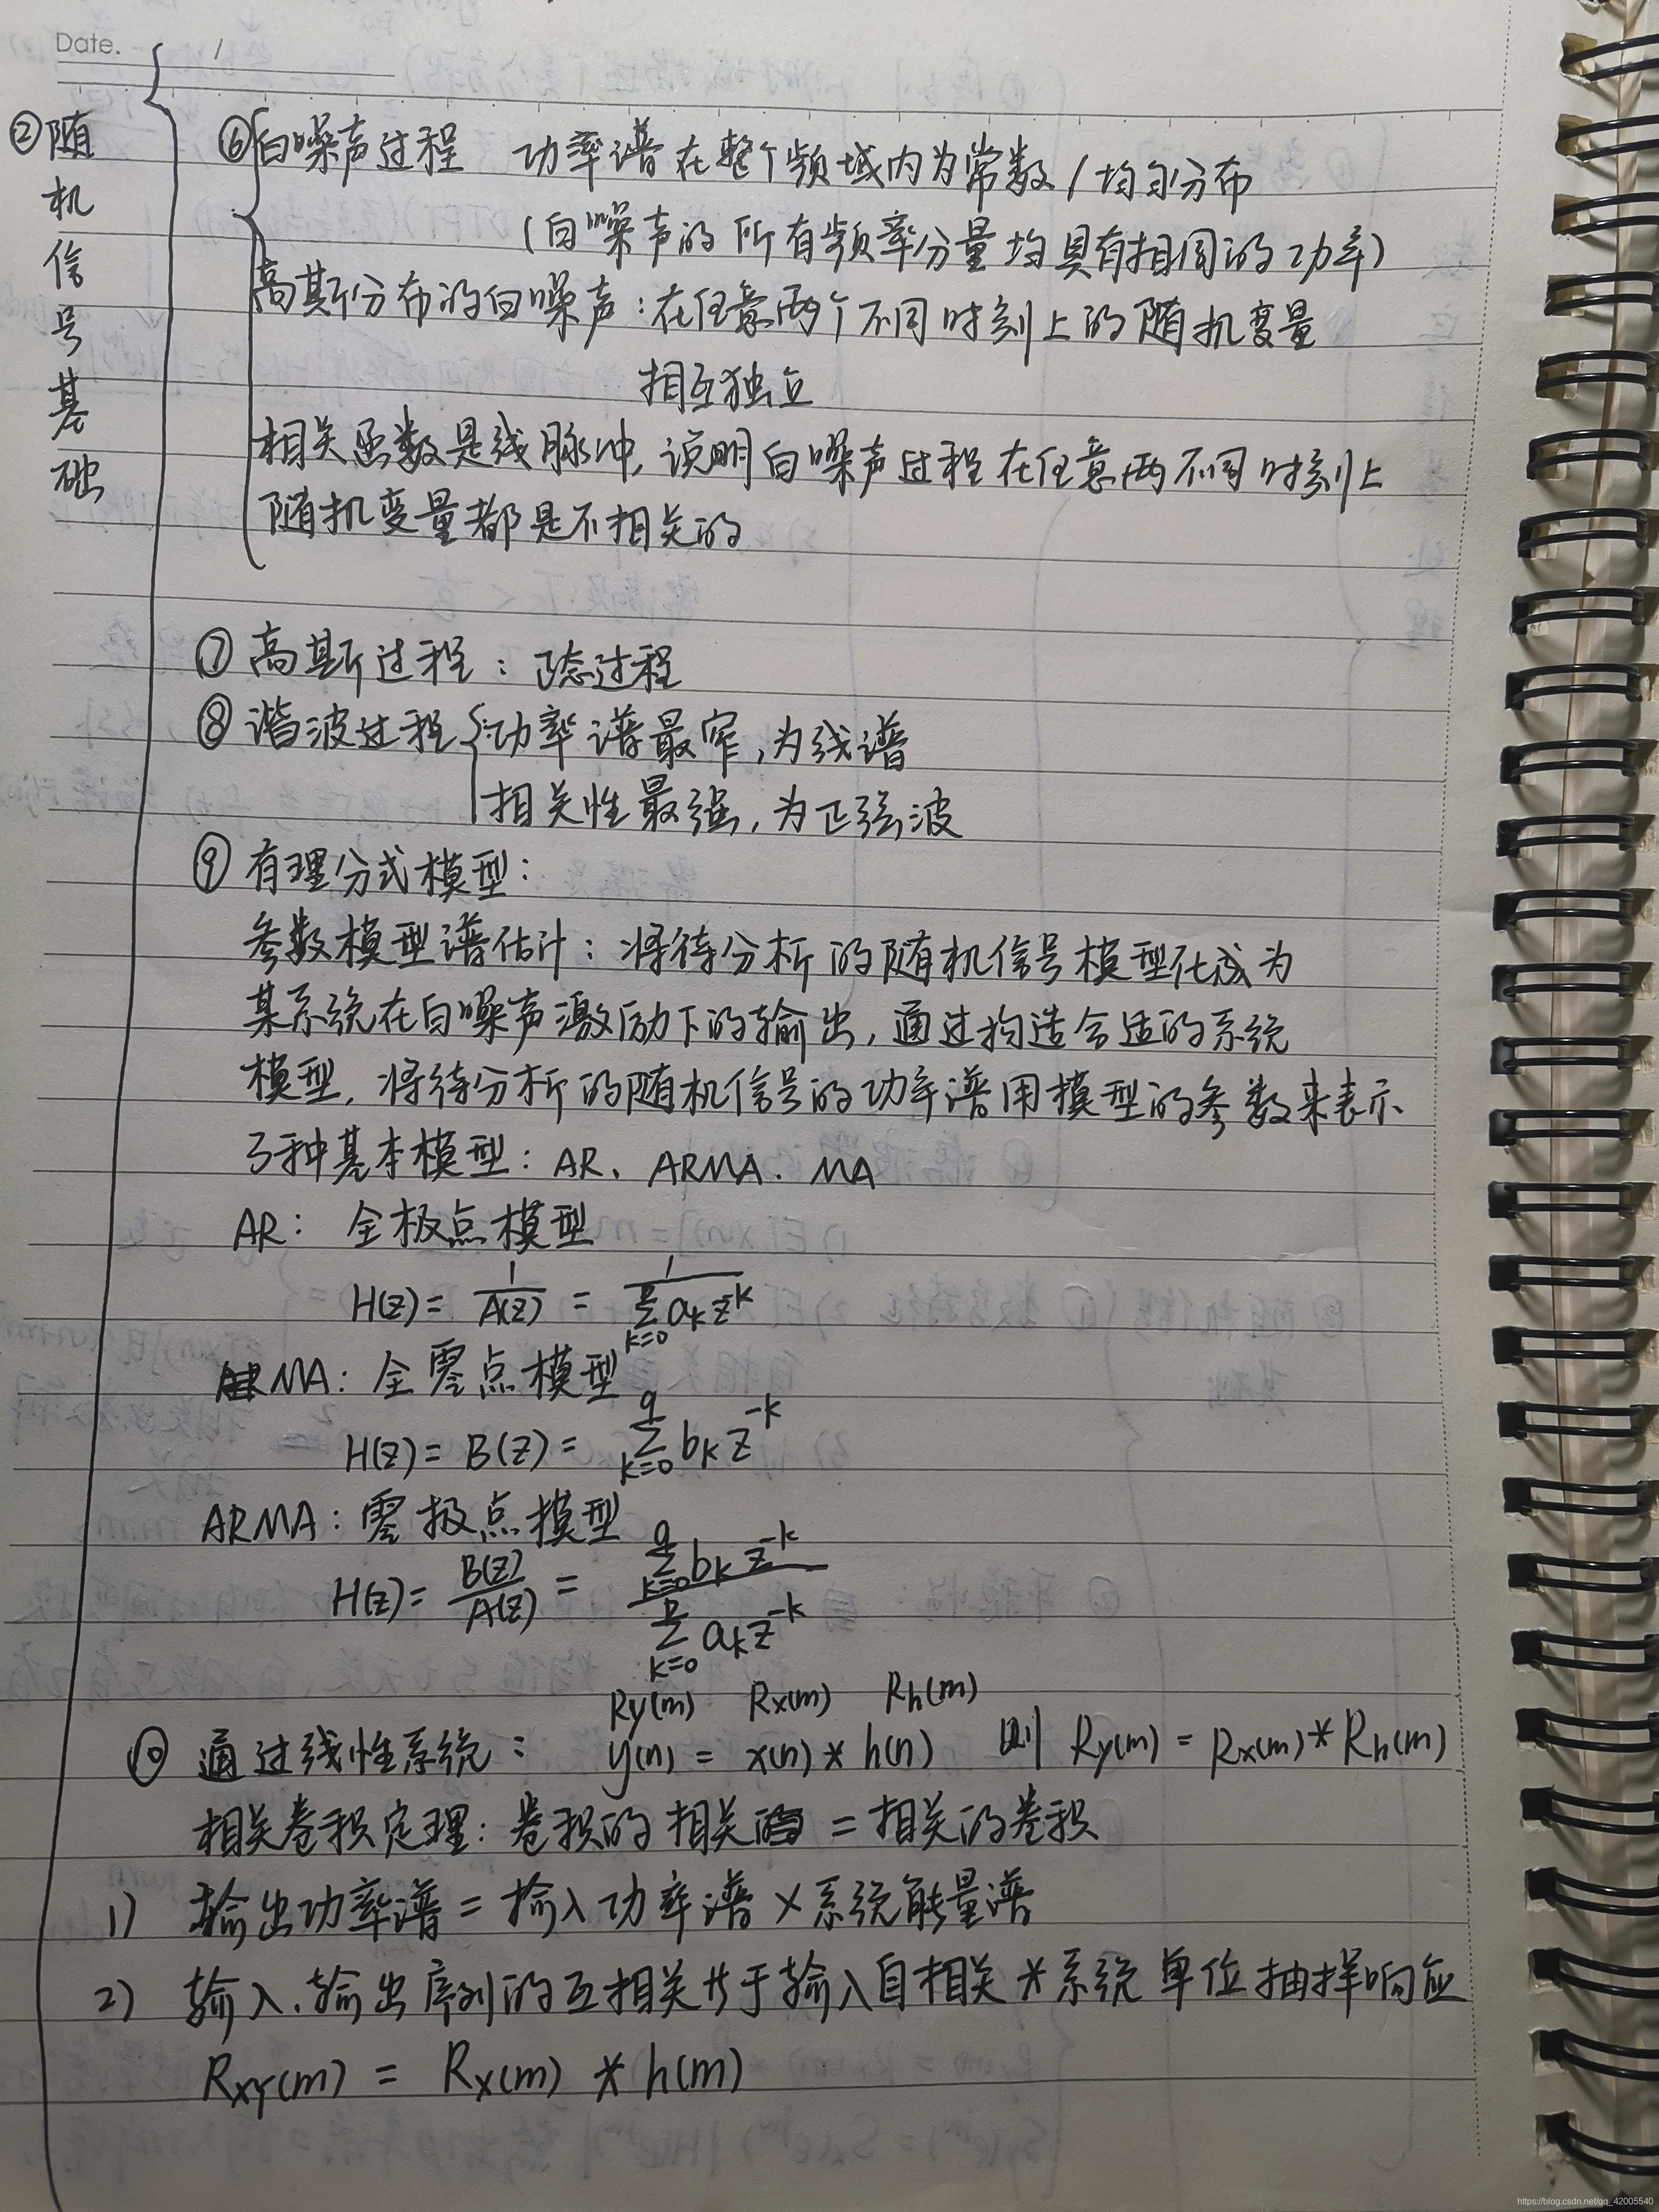 Date. /
②随机信号基础
⑥白噪声过程 功率谱在整个频域内为常数/均匀分布
(白噪声的所有频率分量均具有相同的功率)
高斯分布的白噪声:在任意两个不同时刻上的随机变量
相互独立
相关函数是线脉冲,说明白噪声过程在任意两不同时刻上
随机变量都是不相关的
⑦高斯过程:正态过程
⑧谐波过程{功率谱最窄,为线谱
相关性最强,为正弦波
⑨有理分式模型:
参数模型谱估计:将待分析的随机信号模型化成为
某系统在白噪声激励下的输出,通过构造合适的系统
模型,将待分析的随机信号的功率谱用模型的参数来表示
3种基本模型:AR、ARMA、MA
AR:全极点模型
H(z) = 1/A(z) = 1/∑_{k=0}^{p} a_k z^{-k}
MA:全零点模型
H(z) = B(z) = ∑_{k=0}^{q} b_k z^{-k}
ARMA:零极点模型
H(z) = B(z)/A(z) = ∑_{k=0}^{q} b_k z^{-k} / ∑_{k=0}^{p} a_k z^{-k}
Ry(m) Rx(m) Rh(m)
⑩通过线性系统: y(n) = x(n) * h(n) 则 Ry(m) = Rx(m) * Rh(m)
相关卷积定理:卷积的相关 = 相关的卷积
1) 输出功率谱 = 输入功率谱 × 系统能量谱
2) 输入、输出序列的互相关等于输入自相关 * 系统单位抽样响应
Rxy(m) = Rx(m) * h(m)
https://blog.csdn.net/qq_42005540